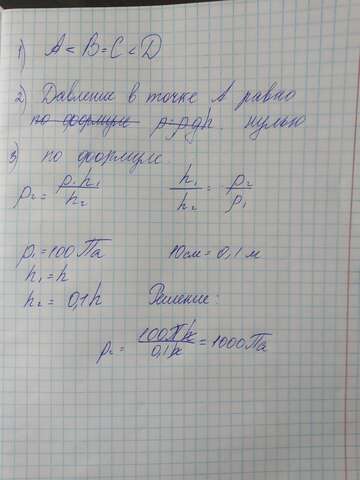 1) A < B = C < D
2) Давление в точке A равно
по формуле p=ρgh. нулю
3) по формуле.
p₂ = p₁h₁/h₂ h₁/h₂ = p₂/p₁
p₁ = 100 Па 10см = 0,1 м
h₁ = h
h₂ = 0,1h Решение:
p₂ = 100Пh/0,1h = 1000 Па